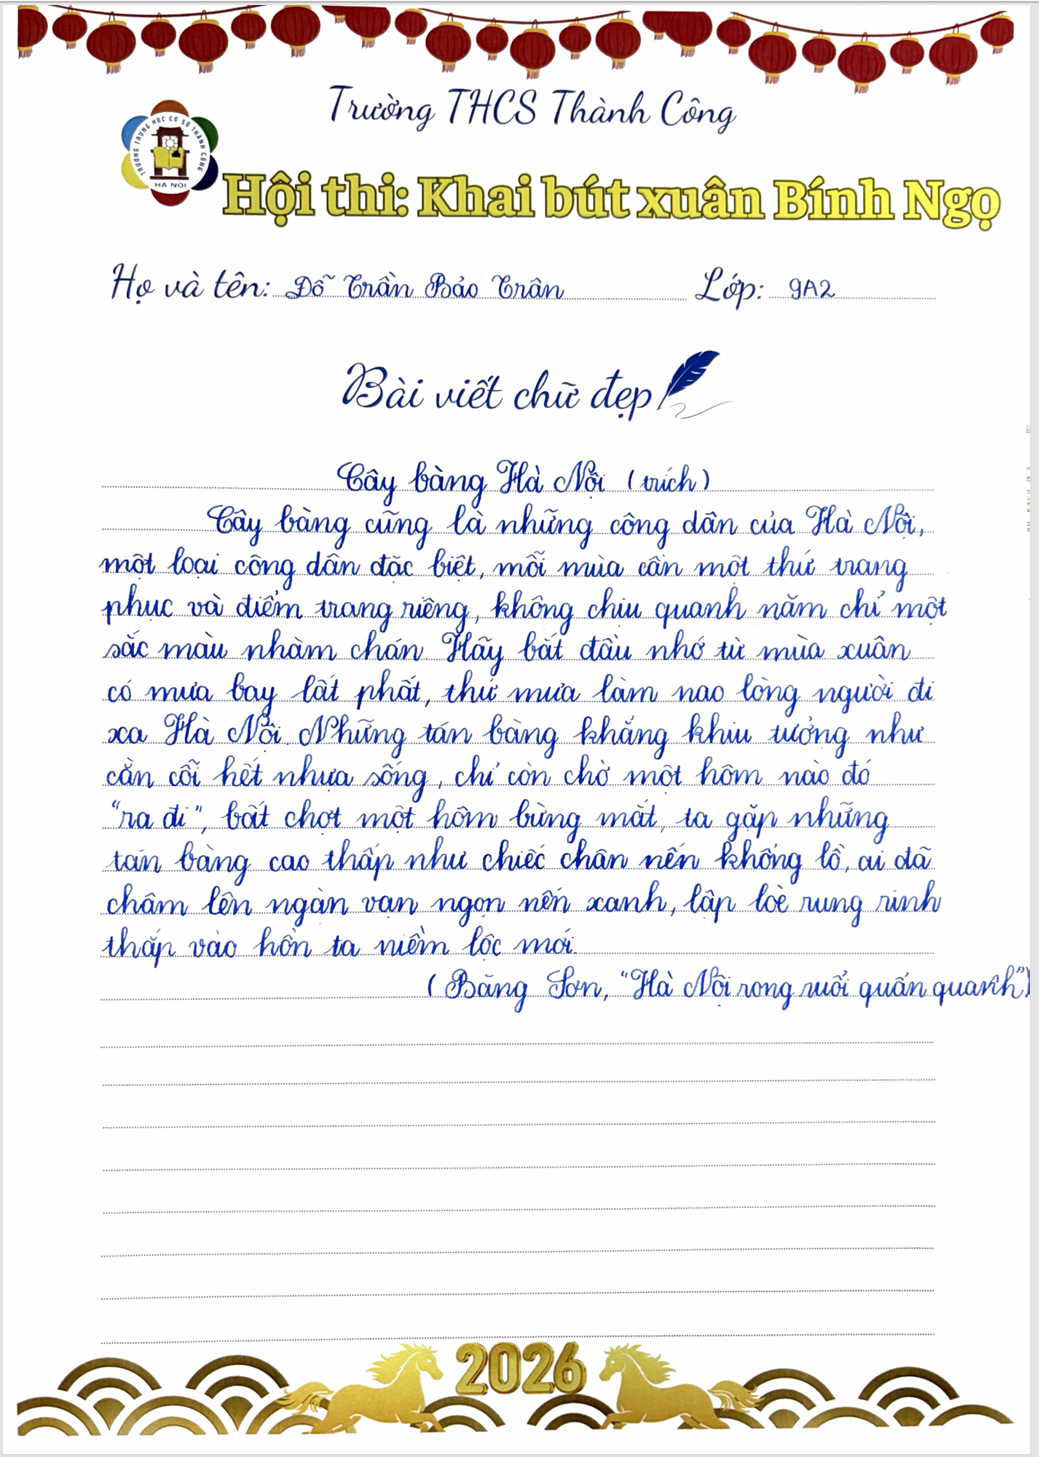 Trường THCS Thành Công
TRƯỜNG TRUNG HỌC CƠ SỞ THÀNH CÔNG
HÀ NỘI
Hội thi: Khai bút xuân Bính Ngọ
Họ và tên: Đỗ Trần Bảo Trân Lớp: 9A2
Bài viết chữ đẹp
Cây bàng Hà Nội (trích)
Cây bàng cũng là những công dân của Hà Nội,
một loại công dân đặc biệt, mỗi mùa cần một thứ trang
phục và điểm trang riêng, không chịu quanh năm chỉ một
sắc màu nhàm chán. Hãy bắt đầu nhớ từ mùa xuân
có mưa bay lất phất, thứ mưa làm nao lòng người đi
xa Hà Nội. Những tán bàng khẳng khiu tưởng như
cằn cỗi hết nhựa sống, chỉ còn chờ một hôm nào đó
"ra đi", bất chợt một hôm bừng mắt, ta gặp những
tán bàng cao thấp như chiếc chân nến khổng lồ, ai đã
châm lên ngàn vạn ngọn nến xanh, lập lòe rung rinh
thắp vào hồn ta niềm lộc mới.
( Băng Sơn, "Hà Nội rong ruổi quẩn quanh")
2026